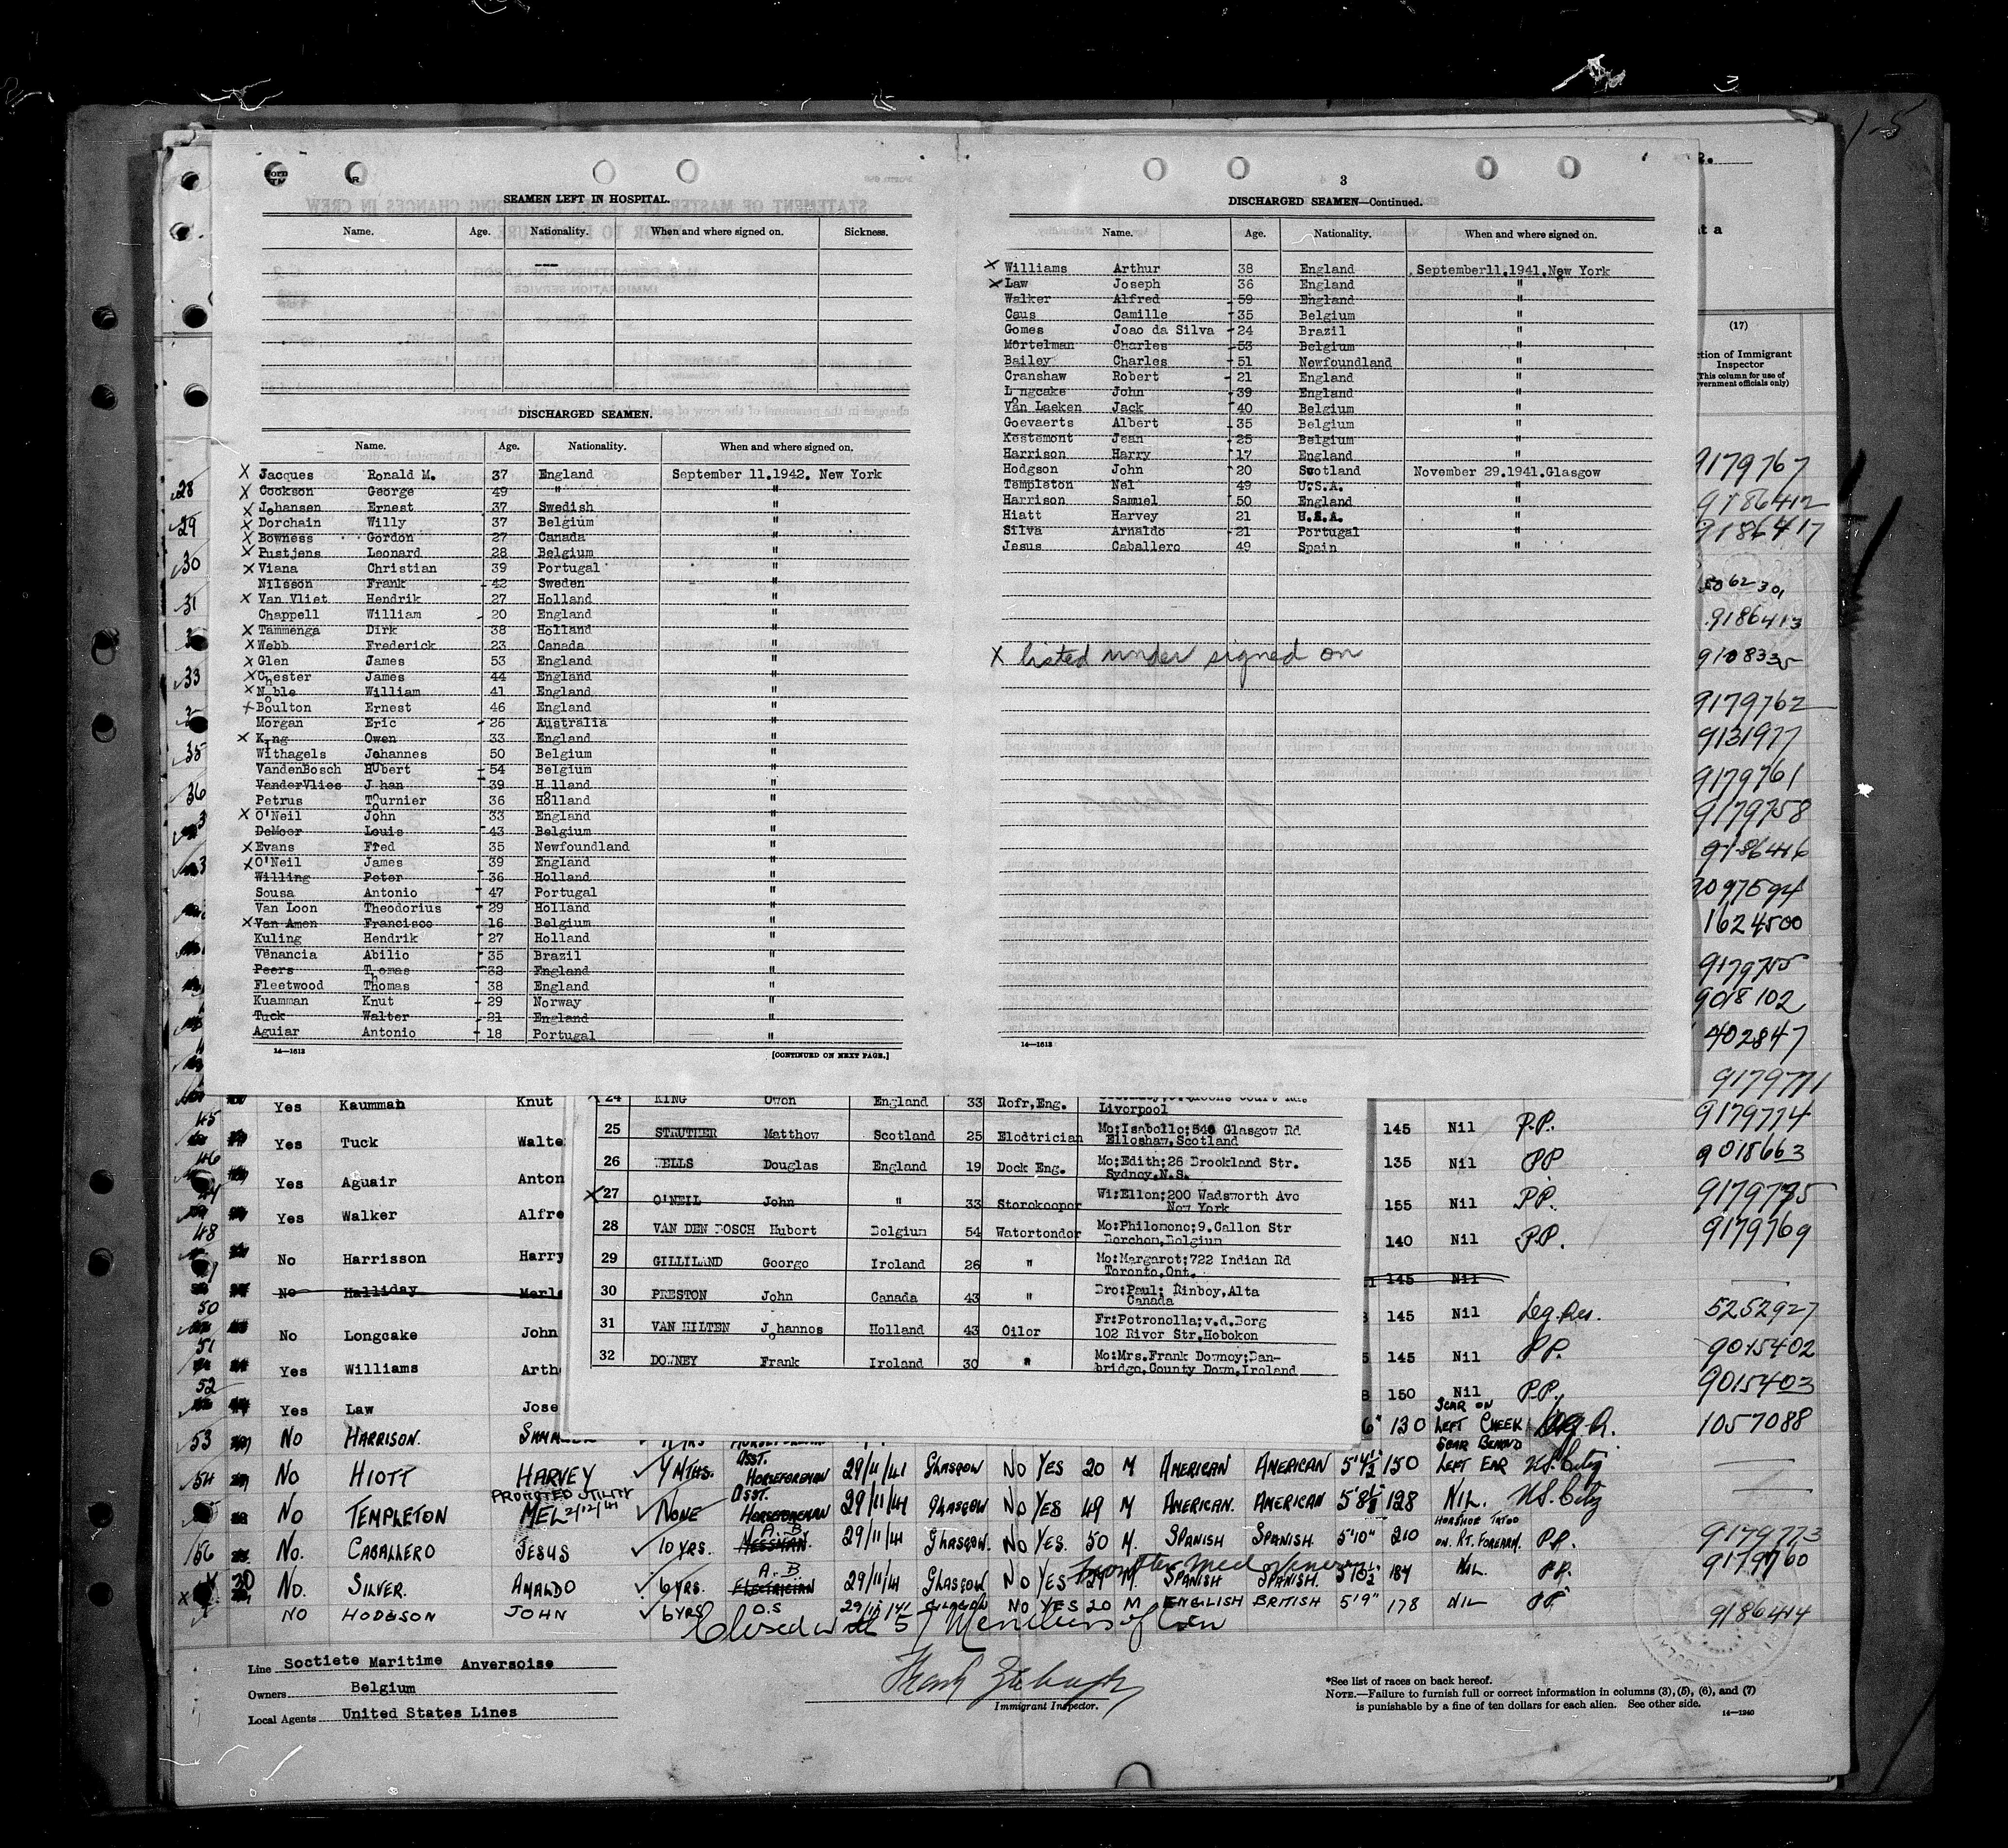 1-5
3
SEAMEN LEFT IN HOSPITAL.
Name. Age. Nationality. When and where signed on. Sickness.
DISCHARGED SEAMEN.
Name. Age. Nationality. When and where signed on.
X Jacques Ronald M. 37 England September 11.1942. New York
X Cookson George 49 " "
X Johansen Ernest 37 Swedish "
X Dorchain Willy 37 Belgium "
X Bowness Gordon 27 Canada "
X Pustjens Leonard 28 Belgium "
X Viana Christian 39 Portugal "
Nilsson Frank 42 Sweden "
X Van Vliet Hendrik 27 Holland "
Chappell William 20 England "
X Tammenga Dirk 38 Holland "
X Webb Frederick 23 Canada "
X Glen James 53 England "
X Chester James 44 England "
X Noble William 41 England "
X Boulton Ernest 46 England "
Morgan Eric 26 Australia "
X King Owen 33 England "
Withagels Johannes 50 Belgium "
VandenBosch Hubert 54 Belgium "
VanderVlies Johan 39 Holland "
Petrus Tournier 36 Holland "
X O'Neil John 33 England "
DeMoor Louis 43 Belgium "
X Evans Fred 35 Newfoundland "
X O'Neil James 39 England "
Willing Peter 36 Holland "
Sousa Antonio 47 Portugal "
Van Loon Theodorius 29 Holland "
X Van Amen Francisco 16 Belgium "
Kuling Hendrik 27 Holland "
Venancia Abilio 35 Brazil "
Peers Thomas 32 England "
Fleetwood Thomas 38 England "
Kuamman Knut 29 Norway "
Tuck Walter 21 England "
Aguiar Antonio 18 Portugal "
14—1613 [CONTINUED ON NEXT PAGE.]
3
DISCHARGED SEAMEN—Continued.
Name. Age. Nationality. When and where signed on.
X Williams Arthur 38 England September11.1941.New York
X Law Joseph 36 England "
Walker Alfred 59 England "
Caus Camille 35 Belgium "
Gomes Joao da Silva 24 Brazil "
Mortelman Charles 53 Belgium "
Bailey Charles 51 Newfoundland "
Cranshaw Robert 21 England "
Longcake John 39 England "
Van Laeken Jack 40 Belgium "
Goevaerts Albert 35 Belgium "
Kestemont Jean 25 Belgium "
Harrison Harry 17 England "
Hodgson John 20 Scotland November 29.1941.Glasgow
Templeton Nel 49 U.S.A. "
Harrison Samuel 50 England "
Hiatt Harvey 21 U.S.A. "
Silva Arnaldo 21 Portugal "
Jesus Caballero 49 Spain "
X listed under signed on
14—1613
2.
(17)
ction of Immigrant
Inspector
(This column for use of
vernment officials only)
9179767
9186412
9186417
5062301
9186413
9108335
9179762
9131977
9179761
9179758
9186416
9097594
1624500
9179755
9018102
402847
9179771
28
29
30
31
33
35
36
45 Yes Kaumman Knut 9179774
46 Yes Tuck Walte 145 Nil P.P. 9018663
Yes Aguair Anton 135 Nil PP 9179775
48 Yes Walker Alfre 155 Nil P.P. 9179769
No Harrisson Harry 140 Nil P.P.
No Halliday Merle 145 Nil
50 No Longcake John 145 Nil Leg.Res. 5252927
51 Yes Williams Arth 145 Nil P.P. 9015402
52 Yes Law Jose 150 Nil P.P. 9015403
24 KING Owon England 33 Rofr,Eng.
Liverpool
25 STRUTHER Matthow Scotland 25 Elodtrician Mo:Isabollo:546 Glasgow Rd
Elloshaw,Scotland
26 WELLS Douglas England 19 Dock Eng. Mo:Edith;26 Brookland Str.
Sydney.N.S.
X 27 O'NEIL John " 33 Storokoopor Wi:Ellon;200 Wadsworth Avo
Now York
28 VAN DEN BOSCH Hubort Bolgium 54 Watortondor Mo:Philomono;9.Gallon Str
Borchom,Bolgium
29 GILLILAND Goorgo Iroland 26 " Mo:Margarot;722 Indian Rd
Toronto,Ont.
30 PRESTON John Canada 43 " Bro:Paul; Rinboy,Alta
Canada
31 VAN HILTEN Johannos Holland 43 Oilor Fr:Potronolla;v.d.Borg
102 Rivor Str,Hoboken
32 DOWNEY Frank Iroland 30 " Mo:Mrs.Frank Downoy;Ban-
bridgo,County Down,Iroland
53 No HARRISON. 6" 130 SCAR ON LEFT CHEEK Leg. R. 1057088
54 No HIOTT HARVEY 4 MTHS. ASST. HORSEFOREMAN 29/11/41 GLASGOW NO YES 20 M AMERICAN AMERICAN 5'4½ 150 SCAR BEHIND LEFT EAR U.S. City
PROMOTED UTILITY 2/12/41
No TEMPLETON MEL NONE ASST. HORSEFOREMAN 29/11/41 GLASGOW NO YES 49 M AMERICAN. AMERICAN 5'8½ 128 NIL. U.S. City
56 No. CABALLERO JESUS 10 YRS. A.B. MESSMAN. 29/11/41 GLASGOW. NO YES. 50 M. SPANISH SPANISH. 5'10" 210 HORSHOE TATOO ON RT. FOREARM. P.P. 9179773
No. SILVER. AMALDO 6 YRS. A.B. ELECTRICIAN 29/11/41 GLASGOW NO YES M. SPANISH SPANISH. 184 NIL. P.P. 9179760
NO HODGSON JOHN 6 YRS O.S 29/11/41 GLASGOW NO YES 20 M ENGLISH BRITISH 5'9" 178 NIL PP 9186414
Closed with 57 Members of Crew
Line Soctiete Maritime Anversoise
Owners Belgium
Local Agents United States Lines
Immigrant Inspector.
*See list of races on back hereof.
NOTE.—Failure to furnish full or correct information in columns (3), (5), (6), and (7)
is punishable by a fine of ten dollars for each alien. See other side.
14—1240